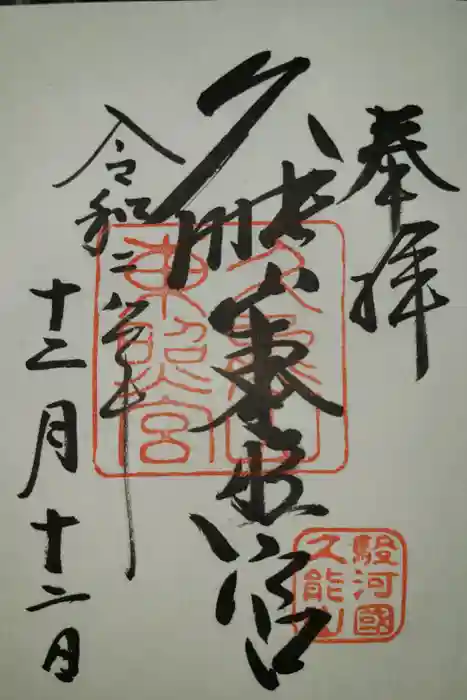 奉拝
久能山東照宮
久能山
東照宮
駿河國
久能山
令和二年
十二月十二日